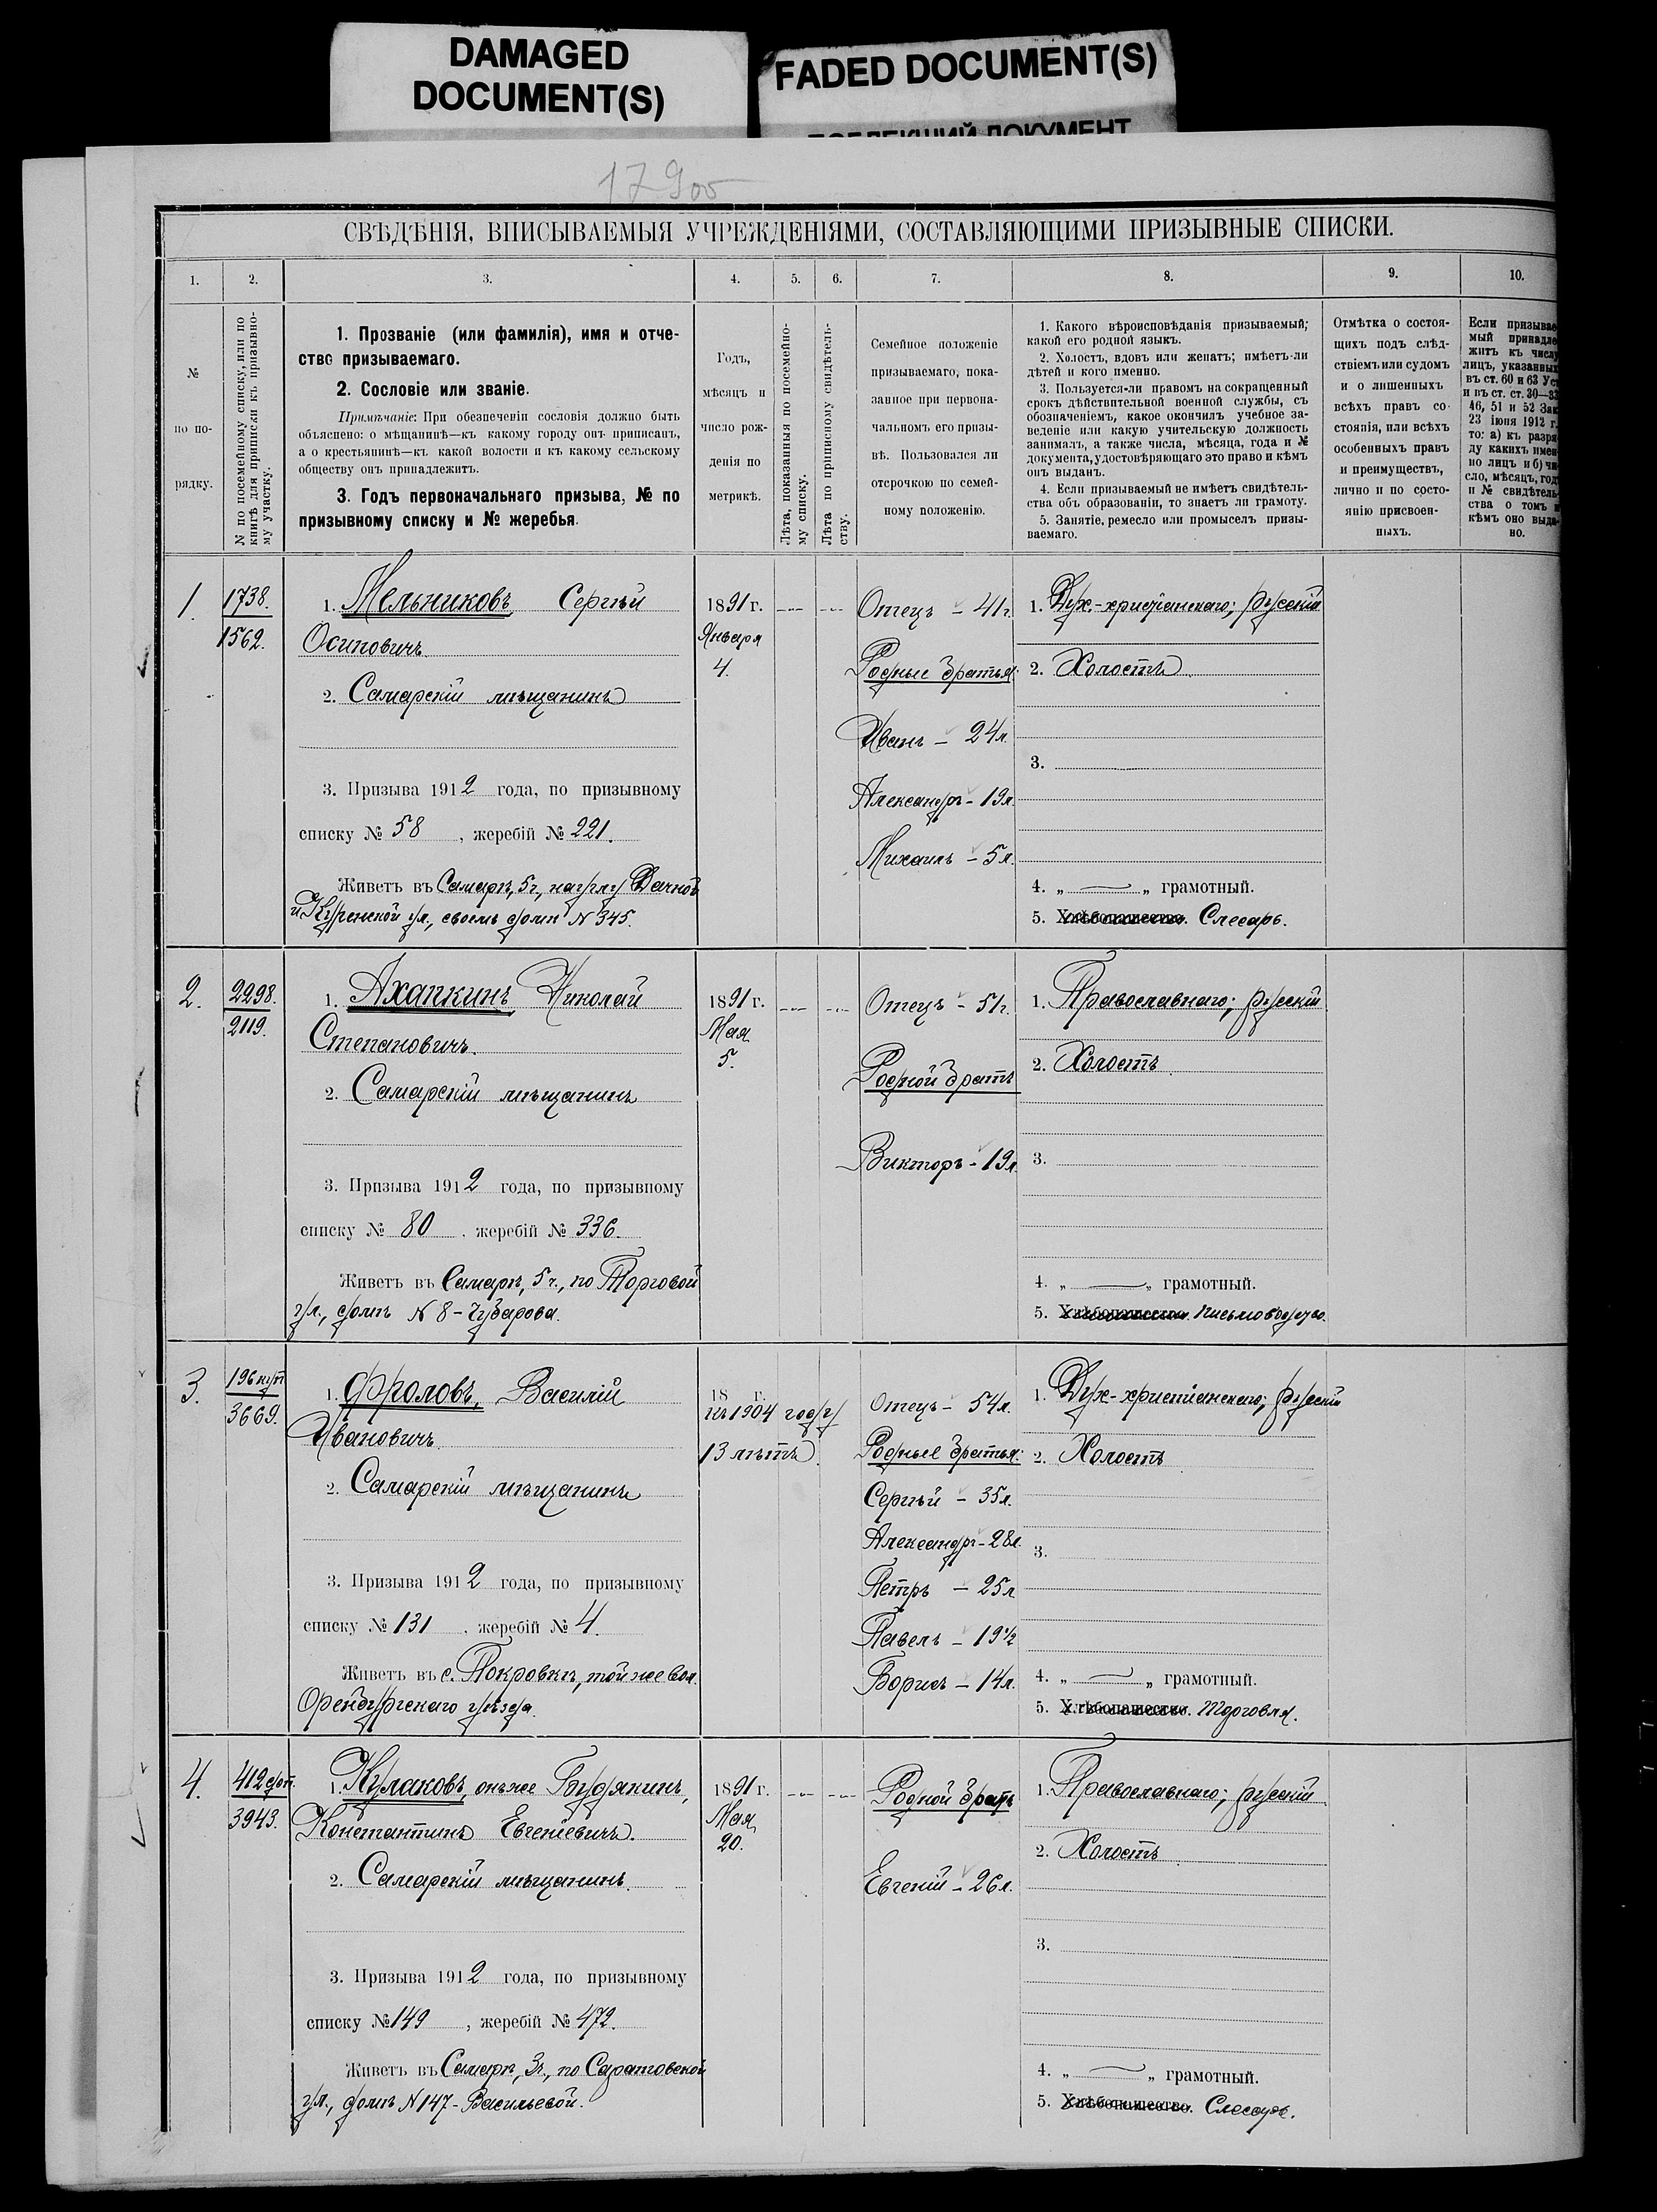 DAMAGED
DOCUMENT(S)
FADED DOCUMENT(S)
17900
СВѢДѢНІЯ, ВПИСЫВАЕМЫЯ УЧРЕЖДЕНІЯМИ, СОСТАВЛЯЮЩИМИ ПРИЗЫВНЫЕ СПИСКИ.
1. 2. 3. 4. 5. 6. 7. 8. 9. 10.
№
по по-
рядку.
№ по посемейному списку, или по
книгѣ для приписки къ призывно-
му участку.
1. Прозваніе (или фамилія), имя и отче-
ство призываемаго.
2. Сословіе или званіе.
Примѣчаніе: При обезпеченіи сословія должно быть
объяснено: о мѣщанинѣ—къ какому городу онъ приписанъ,
а о крестьянинѣ—къ какой волости и къ какому сельскому
обществу онъ принадлежитъ.
3. Годъ первоначальнаго призыва, № по
призывному списку и № жеребья.
Годъ,
мѣсяцъ и
число рож-
денія по
метрикѣ.
Лѣта, показанныя по посемейно-
му списку.
Лѣта по приписному свидѣтель-
ству.
Семейное положеніе
призываемаго, пока-
занное при первона-
чальномъ его призы-
вѣ. Пользовался ли
отсрочкою по семей-
ному положенію.
1. Какого вѣроисповѣданія призываемый;
какой его родной языкъ.
2. Холостъ, вдовъ или женатъ; имѣетъ-ли
дѣтей и кого именно.
3. Пользуется-ли правомъ на сокращенный
срокъ дѣйствительной военной службы, съ
обозначеніемъ, какое окончилъ учебное за-
веденіе или какую учительскую должность
занималъ, а также числа, мѣсяца, года и №
документа, удостовѣряющаго это право и кѣмъ
онъ выданъ.
4. Если призываемый не имѣетъ свидѣтель-
ства объ образованіи, то знаетъ ли грамоту.
5. Занятіе, ремесло или промыселъ призы-
ваемаго.
Отмѣтка о состоя-
щихъ подъ слѣд-
ствіемъ или судомъ
и о лишенныхъ
всѣхъ правъ со-
стоянія, или всѣхъ
особенныхъ правъ
и преимуществъ,
лично и по состо-
янію присвоен-
ныхъ.
Если призывае
мый принадле
житъ къ числу
лицъ, указанных
въ ст. 60 и 63 Ус
и въ ст. ст. 30—33
46, 51 и 52 Зак
23 іюня 1912 г.
то: а) къ разря
ду какихъ имен
но лицъ и б) чи
сло, мѣсяцъ, год
и № свидѣтель
ства о томъ и
кѣмъ оно выда-
но.
1.
1738.
1562.
1. Мельниковъ Сергѣй
Осиповичъ
2. Самарскій мѣщанинъ
3. Призыва 1912 года, по призывному
списку № 58, жеребій № 221.
Живетъ въ Самарѣ, 5ч., на углу Дачной
и Кузнецкой ул., своемъ домѣ № 345.
1891 г.
Января
4.
Отецъ – 41г.
Родные братья:
Иванъ – 24л.
Александръ – 19л.
Михаилъ – 5л.
1. Дух-христіанскаго; русскій
2. Холостъ
3.
4. „ — „ грамотный.
5. Хлѣбопашество. Слесарь.
2.
2298.
2119.
1. Ахапкинъ Николай
Степановичъ.
2. Самарскій мѣщанинъ
3. Призыва 1912 года, по призывному
списку № 80, жеребій № 336.
Живетъ въ Самарѣ, 5ч., по Торговой
ул., домъ № 8 – Чубарова.
1891 г.
Мая
5.
Отецъ – 51г.
Родной братъ
Викторъ – 19л.
1. Православнаго; русскій
2. Холостъ
3.
4. „ — „ грамотный.
5. Хлѣбопашество. Письмоводство.
3.
196 куп
3669.
1. Фроловъ, Василій
Ивановичъ
2. Самарскій мѣщанинъ
3. Призыва 1912 года, по призывному
списку № 131, жеребій № 4.
Живетъ въ с. Покровкѣ, той же вол.
Оренбургскаго уѣзда.
18 г.
къ 1904 году
13 лѣтъ.
Отецъ – 54л.
Родные братья:
Сергѣй – 35л.
Александръ – 28л.
Петръ – 25л
Павелъ – 19½
Борисъ – 14л.
1. Дух-христіанскаго; русскій
2. Холостъ
3.
4. „ — „ грамотный.
5. Хлѣбопашество. Торговля.
4.
412 доп.
3943.
1. Кулаковъ, онъ же Будякинъ,
Константинъ Евгеніевичъ.
2. Самарскій мѣщанинъ.
3. Призыва 1912 года, по призывному
списку № 149, жеребій № 472.
Живетъ въ Самарѣ, 3ч., по Саратовской
ул., домъ № 147 – Васильевой.
1891 г.
Мая
20.
Родной братъ
Евгеній – 26л.
1. Православнаго; русскій
2. Холостъ
3.
4. „ — „ грамотный.
5. Хлѣбопашество. Слесарь.